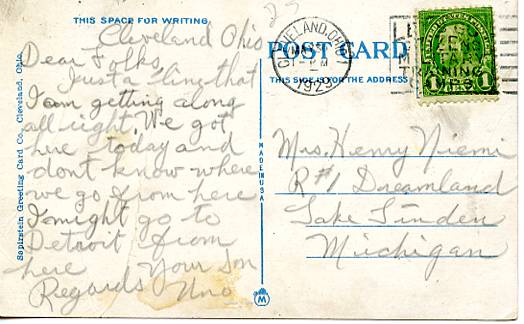 THIS SPACE FOR WRITING
Cleveland Ohio
Dear Folks,
Just a line that
I am getting along
all right. We got
here today and
dont know where
we go from here
I might go to
Detroit from
here Your Son
Regards Uno
Sapirstein Greeting Card Co., Cleveland, Ohio.
MADE IN USA
M
23
CLEVELAND, OHIO
1929
POST CARD
THIS SIDE IS FOR THE ADDRESS
1 1
Mrs. Henry Niemi
R#1 Dreamland
Lake Linden
Michigan